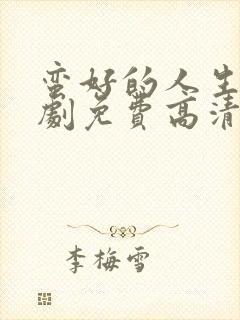 蛮好的人生
劇免費高清
李梅雪